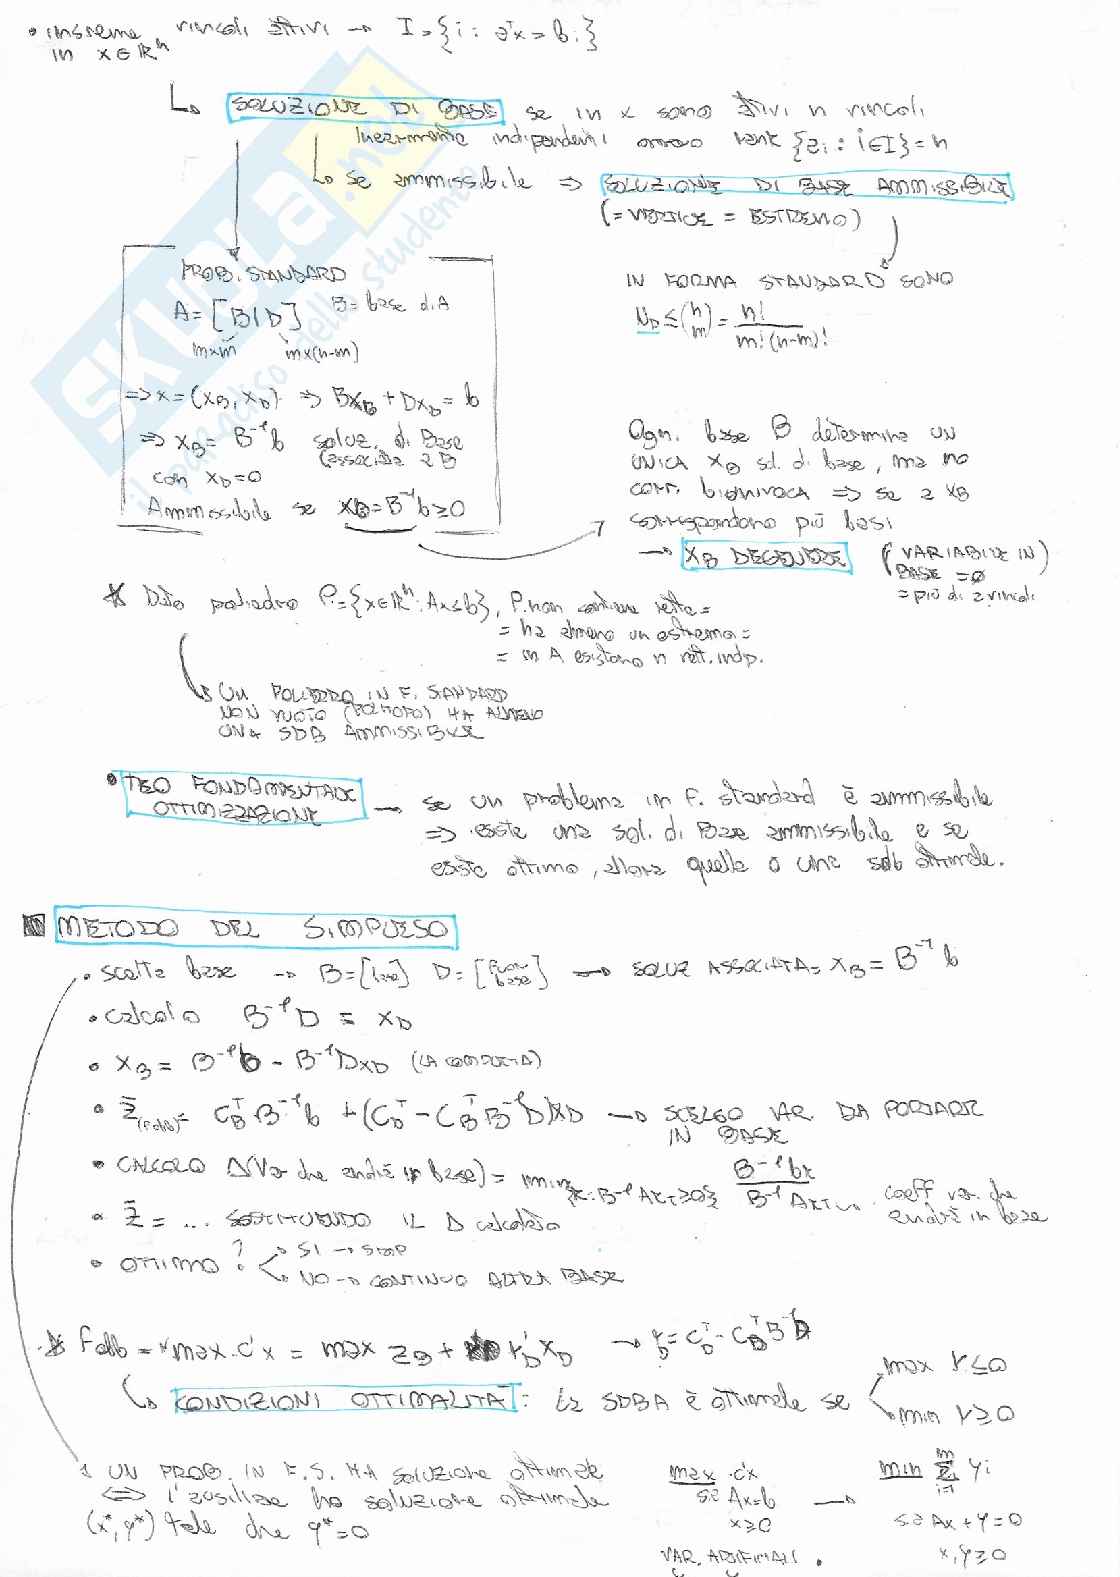 • insieme vincoli attivi → I = {i : aᵀx = bᵢ}
in x ∈ ℝⁿ
↳ SOLUZIONE DI BASE se in x sono attivi n vincoli
linearmente indipendenti ovvero rank {aᵢ : i ∈ I} = n
↳ se ammissibile ⇒ SOLUZIONE DI BASE AMMISSIBILE
(= VERTICE = ESTREMO)
PROB. STANDARD
A = [B|D] B = base di A
m×m m×(n-m)
⇒ x = (x_B, x_D) ⇒ Bx_B + Dx_D = b
⇒ x_B = B⁻¹b soluz. di Base
(associata a B
con x_D = 0
Ammissibile se x_B = B⁻¹b ≥ 0
IN FORMA STANDARD SONO
N_D ≤ (n m) = n! / m!(n-m)!
Ogni base B determina un
UNICA x_B sol. di base, ma no
corr. biunivoca ⇒ se a x_B
corrispondono più basi
→ X_B DEGENERE (VARIABILE IN)
BASE = ø
= più di 2 vincoli
* Dato poliedro P = {x ∈ ℝⁿ : Ax ≤ b}, P. non contiene rette =
= ha almeno un estremo =
= in A esistono n vett. indip.
↳ UN POLIEDRO IN F. STANDARD
NON VUOTO (POLITOPO) HA ALMENO
UNA SDB AMMISSIBILE
• TEO FONDAMENTALE
OTTIMIZZAZIONE → se un problema in F. standard è ammissibile
⇒ esiste una sol. di Base ammissibile e se
esiste ottimo, allora quella è una sdb ottimale.
METODO DEL SIMPLESSO
• scelta base → B = [base] D = [fuori base] → SOLUZ ASSOCIATA = x_B = B⁻¹b
• calcolo B⁻¹D = x_D
• x_B = B⁻¹b - B⁻¹Dx_D (LA COMPLETA)
• z̄ = C_Bᵀ B⁻¹b + (C_Dᵀ - C_Bᵀ B⁻¹D) x_D → SCELGO VAR. DA PORTARE
IN BASE
• CALCOLO Δ(Var che andrà in base) = min B⁻¹b_k / B⁻¹A coeff var. che
andrà in base
• z̄ = ... SOSTITUENDO IL Δ calcolato
• OTTIMO? SI → STOP
NO → CONTINUO ALTRA BASE
* Fobb = max c'x = max z_B + r'_D x_D → r_D = C_Dᵀ - C_Bᵀ B⁻¹D
↳ CONDIZIONI OTTIMALITA': la SDBA è ottimale se max r ≤ 0
min r ≥ 0
UN PROB. IN F.S. HA soluzione ottimale
⇔ l'ausiliare ha soluzione ottimale
(x*, y*) tale che y* = 0
max c'x
s.a Ax = b
x ≥ 0
→
min Σ yᵢ
s.a Ax + y = 0
x, y ≥ 0
VAR. ARTIFICIALI.
SKUOLA.net
il paradiso dello studente